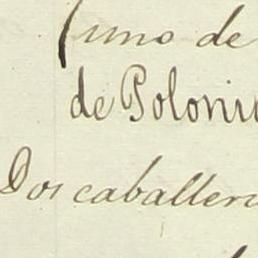 uno de
de Poloni
Dos caballer